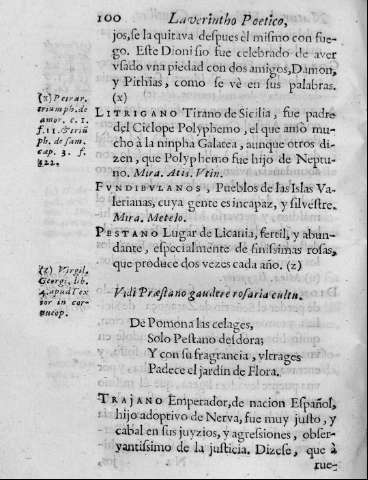 100 Laverintho Poetico,
jos, se la quitava despues el mismo con fue-
go. Este Dionisio fue celebrado de aver
vsado vna piedad con dos amigos, Damon,
y Pithias, como se vè en sus palabras.
(x)
(x) Petrar.
triumph. de
amor. c. 1.
f. 11. & triũ
ph. de fam.
cap. 3. f.
322.
LITRIGANO Tirano de Sicilia, fue padre
del Ciclope Polyphemo, el que amo mu-
cho à la ninpha Galatea, aunque otros di-
zen, que Polyphemo fue hijo de Neptu-
no. Mira. Atis. Vtin.
FVNDIBVLANOS, Pueblos de las Islas Va-
lerianas, cuya gente es incapaz, y silvestre.
Mira. Metelo.
PESTANO Lugar de Licania, fertil, y abun-
dante, especialmente de finissimas rosas,
que produce dos vezes cada año. (z)
(z) Virgil.
Georgi. lib.
4. apud Tex
tor in cor-
nucop.
Vidi Præstano gaudere rosaria cultu.
De Pomona las celages,
Solo Pestano desdora;
Y con su fragrancia, vltrages
Padece el jardin de Flora.
TRAJANO Emperador, de nacion Español,
hijo adoptivo de Nerva, fue muy justo, y
cabal en sus juyzios, y agresiones, obser-
vantissimo de la justicia. Dizese, que à
rue-